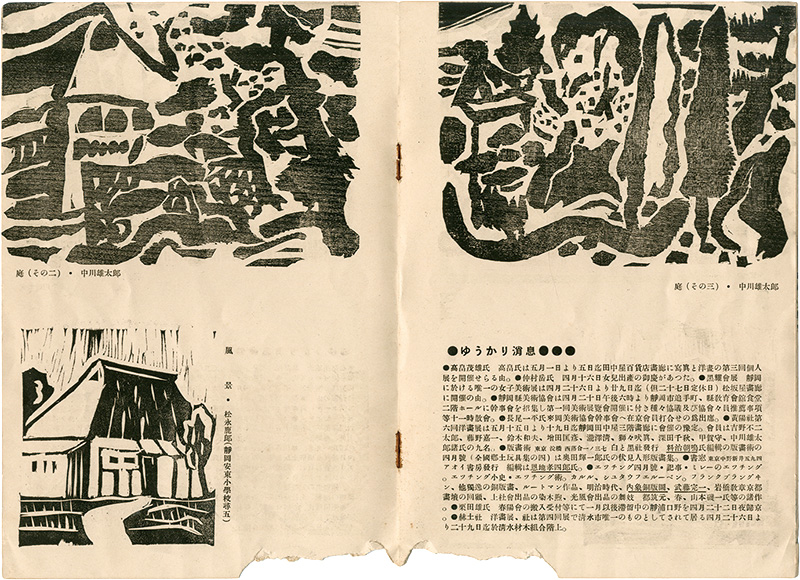 庭（その二）・中川雄太郎
風景・松永應郎（靜岡安東小學校尋五）
庭（その三）・中川雄太郎
●ゆうかり消息●●●
●高畠茂雄氏 高畠氏は五月一日より五日迄田中屋百貨店畫廊に寫眞と洋畫の第三囘個人
展を開催せらる由。●仲村岳氏 四月十六日女兒出產の御慶があつた。●黑曜會展 靜岡
に於ける唯一の女子美術展は四月二十六日より廿九日迄（但二十七日定休日）松坂屋畫廊
に開催の由。●靜岡縣美術協會は四月二十日午後六時より靜岡市追手町、縣敎育會館食堂
二階ホールに幹事會を招集し第一囘美術展覽會開催に付き種々協議及び協會々員推薦事項
等十一時散會。●長尾一平氏 美術協會幹事會へ在京會員打合せの爲出
六囘洋畫展は五月十五日より十九日迄靜岡田中屋三階畫廊にて開催の豫定。會員は吉野不二
太郎、藤野嘉一、鈴木和夫、增田匡喜、瀧澤淸、獅々吠箕、深田千秋、甲賀守、中川雄太
郎諸氏の九名。●版畫術 白と黑社發行 料治朝鳴氏編輯の版畫術の
四月號（全國鄕土玩具集の四）は奧田輝一郎氏の伏見人形版畫集。●書窓
アオイ書房發行 編輯は恩地孝四郎氏。●エツチング四月號・記事・ミレーのエツチング
。エツチング小史・エツチング術。カタル、シユタウフエルーベン。フランクブラングヰ
ン、他獨逸の銅版畫、ルートマン作品。明治時代、內象銅版圖、武藤完一、岩橋敎章京都
畫壇の囘顧。上社會出品の染木煦、光風會出品の舞妓 都筑元、春、山本磯一氏等の諸作
。●栗田雄氏 春陽會の搬入受付等にて一月以後滯留中の靜浦口野を四月二十二日夜歸京
。●赫土社 洋畫展、社は第四囘展で淸水市唯一のものとしてされて居る四月二十六日よ
り二十九日迄於淸水材木組合階上。